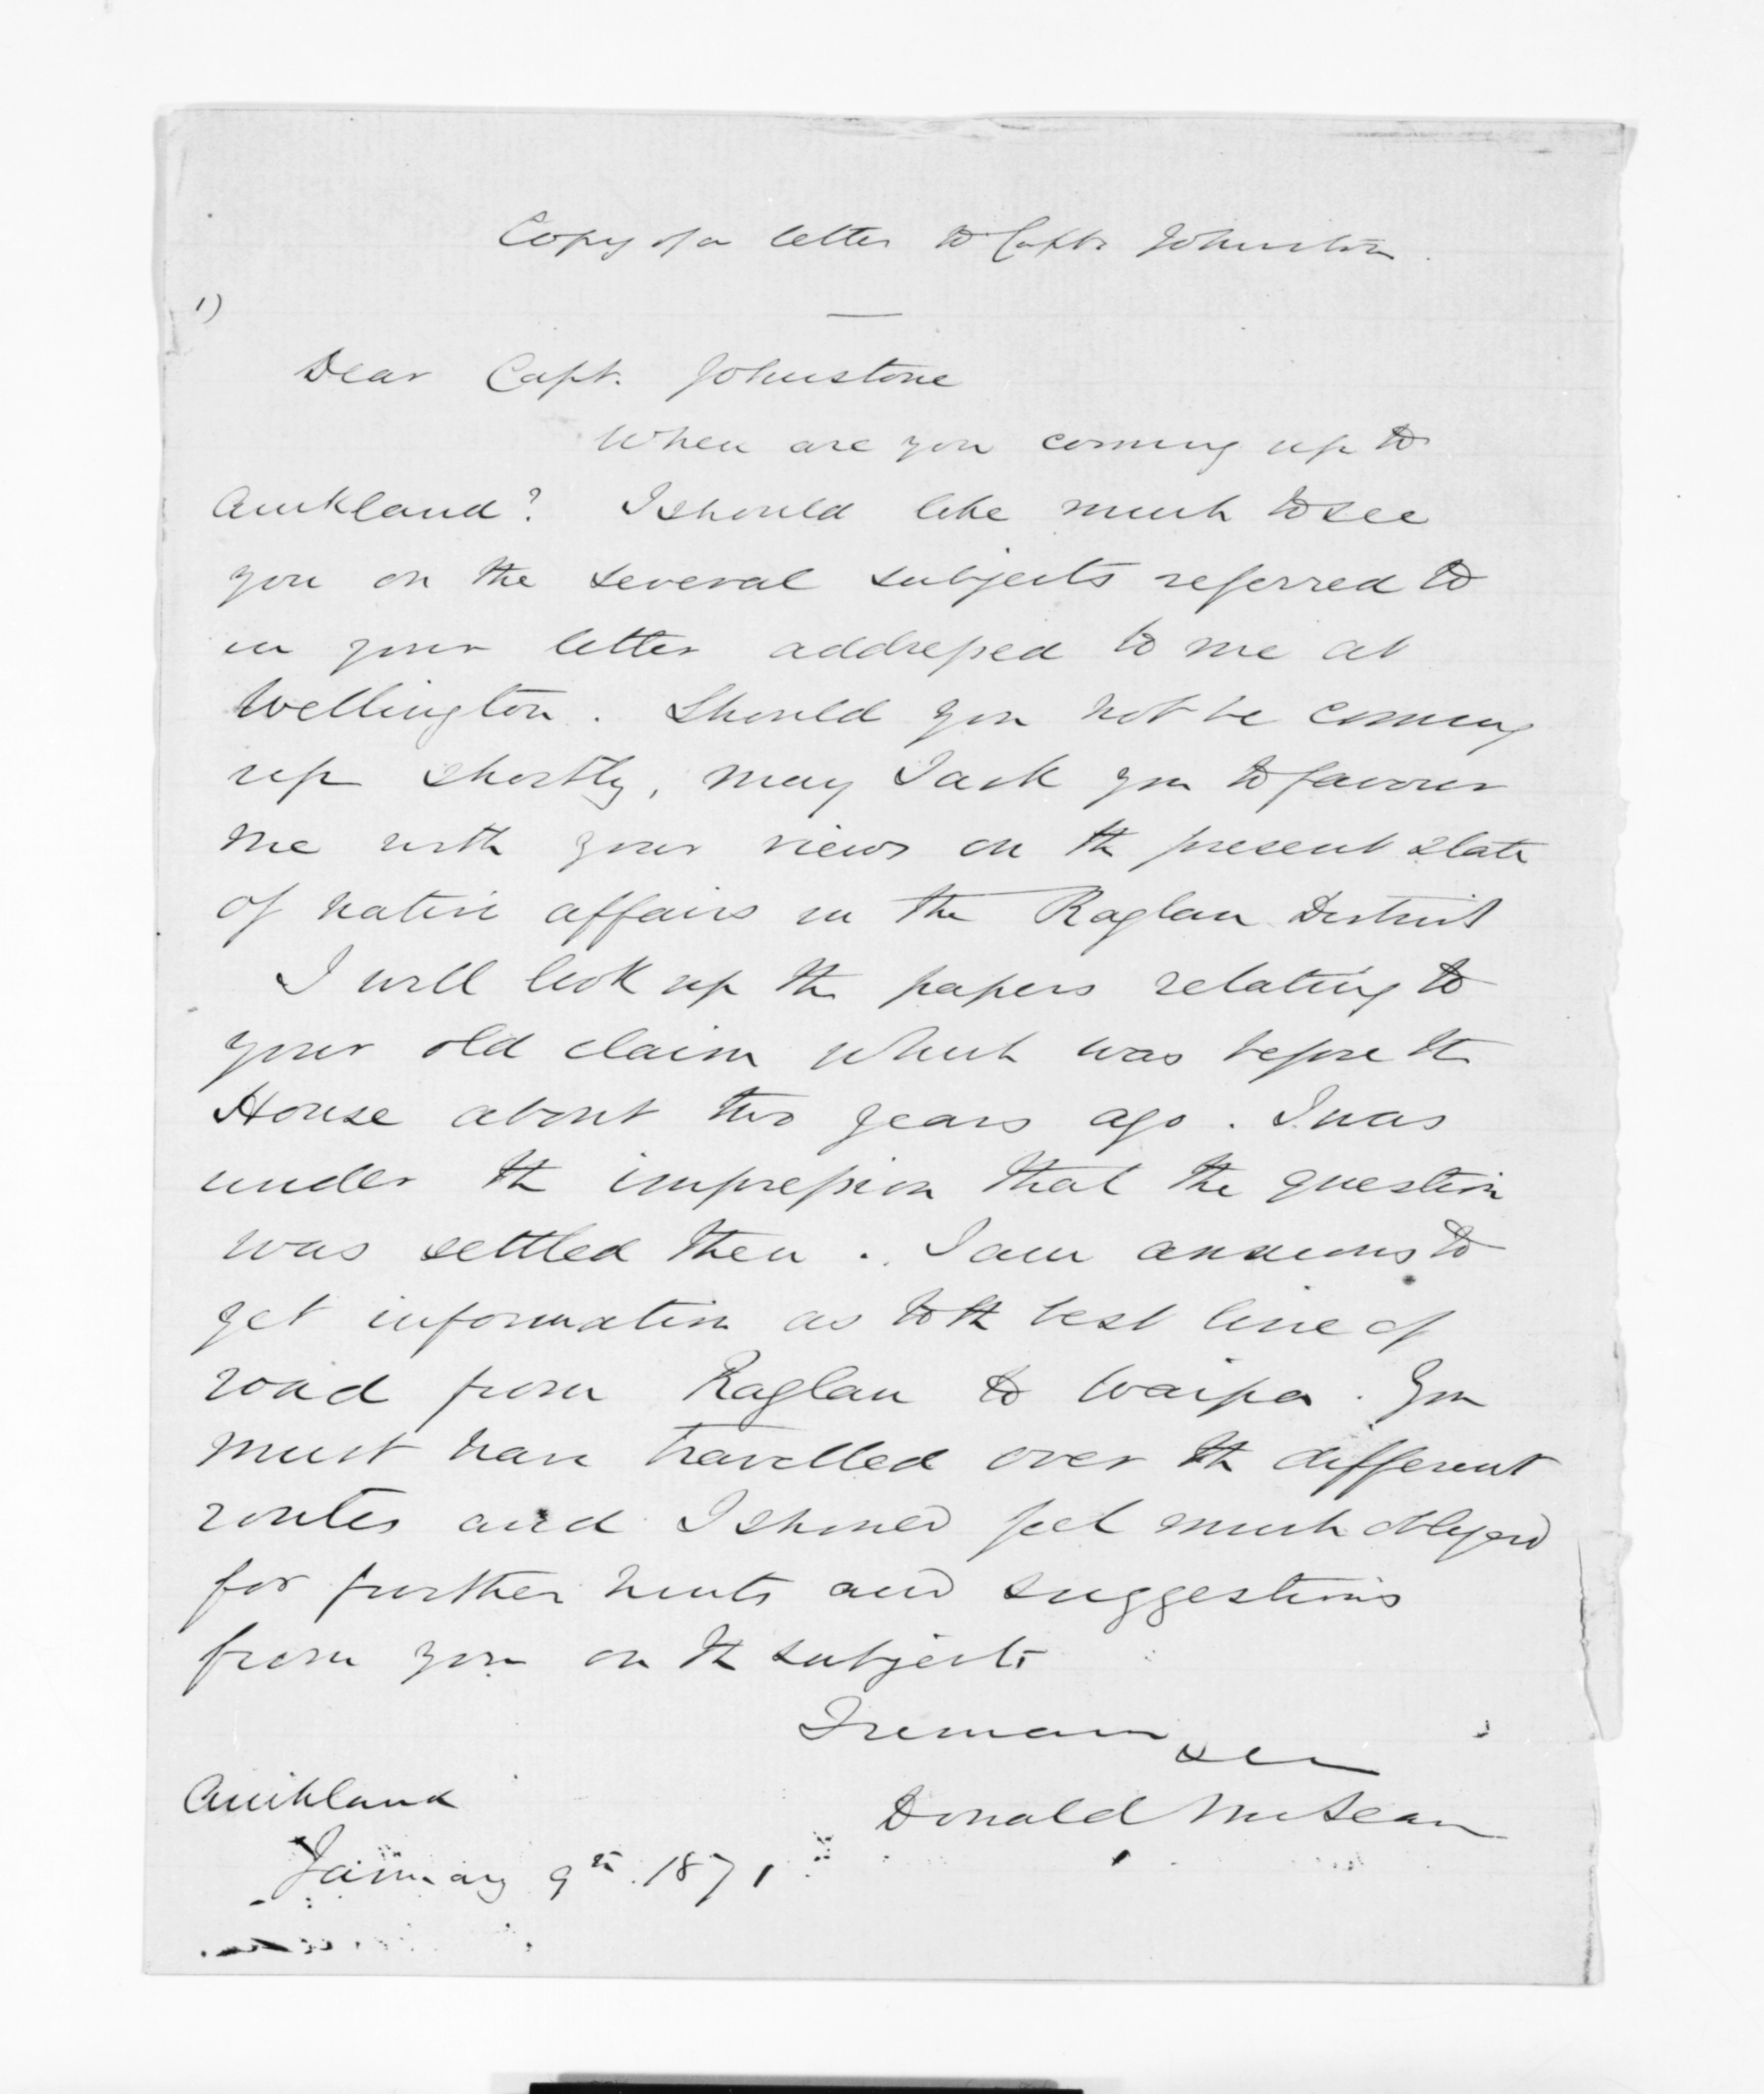 Copy of a letter to Capt. Johnston.
1)
Dear Capt. Johnstone
When are you coming up to
Auckland? I should like much to see
you on the several subjects referred to
in your letter addressed to me at
Wellington. Should you not be coming
up shortly, may I ask you to favour
me with your views on the present state
of native affairs in the Raglan District
I will look up the papers relating to
your old claim which was before the
House about two years ago. I was
under the impression that the question
was settled then. I am anxious to
get information as to the best line of
road from Raglan to Waipa. You
must have travelled over the different
routes and I should feel much obliged
for further hints and suggestions
from you on the subject.
I remain
Donald McLean
Auckland
January 9th. 1871